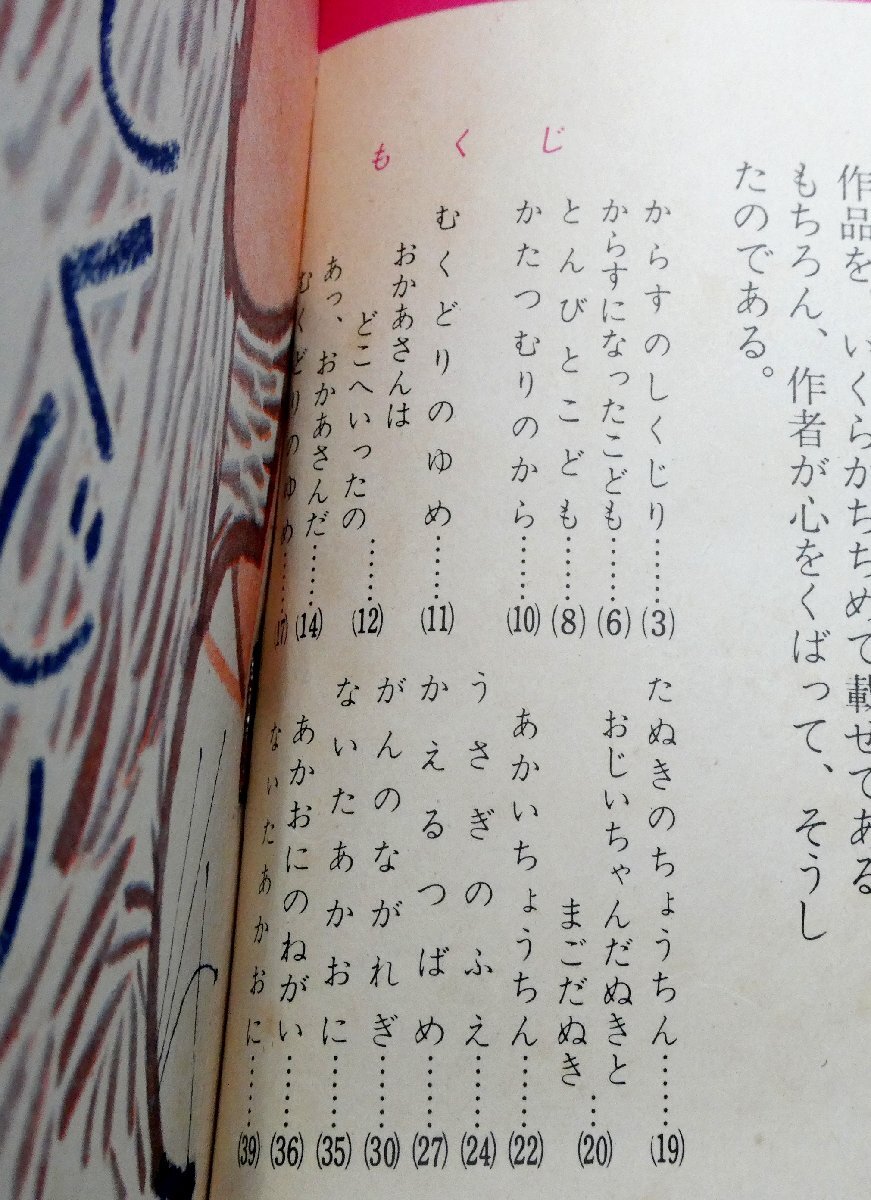 作品を、いくらかちぢめて載せてある
もちろん、作者が心をくばって、そうし
たのである。
もくじ
からすのしくじり……(3)
からすになったこども……(6)
とんびとこども……(8)
かたつむりのから……(10)
むくどりのゆめ……(11)
おかあさんは
どこへいったの……(12)
あっ、おかあさんだ……(14)
むくどりのゆめ……(17)
たぬきのちょうちん……(19)
おじいちゃんだぬきと
まごだぬき…(20)
あかいちょうちん……(22)
うさぎのふえ……(24)
かえるつばめ……(27)
がんのながれぎ……(30)
ないたあかおに……(35)
あかおにのねがい……(36)
ないたあかおに……(39)